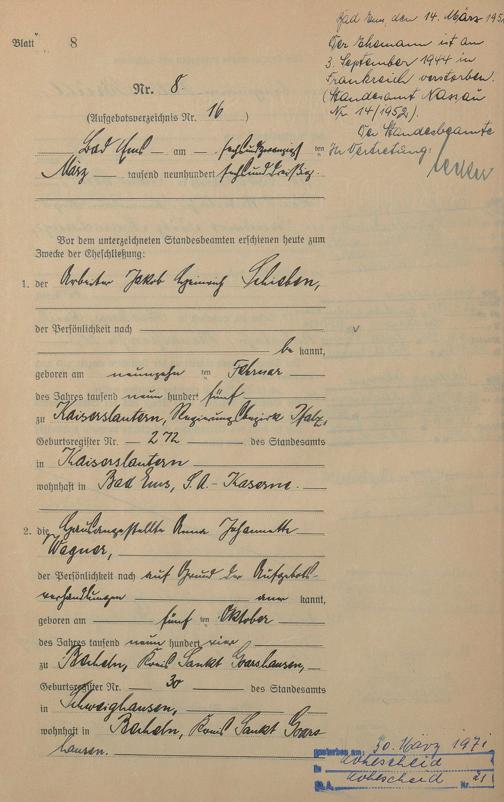 Blatt 8
Nr. 8
(Aufgebotsverzeichnis Nr. 16)
Bad Ems am sechsundzwanzigsten
März tausend neunhundert sechsunddreißig.
Vor dem unterzeichneten Standesbeamten erschienen heute zum
Zwecke der Eheschließung:
1. der Arbeiter Jakob Heinrich Schieben,
der Persönlichkeit nach
bekannt,
geboren am neunzehn ten Februar
des Jahres tausend neun hundert fünf
zu Kaiserslautern, Regierungsbezirk Pfalz,
Geburtsregister Nr. 272 des Standesamts
in Kaiserslautern
wohnhaft in Bad Ems, S.A.-Kaserne.
2. die Hausangestellte Anna Johannette
Wagner,
der Persönlichkeit nach auf Grund der Aufgebots-
verhandlungen anerkannt,
geboren am fünf ten Oktober
des Jahres tausend neun hundert vier
zu Bacheln, Kreis Sankt Goarshausen,
Geburtsregister Nr. 30 des Standesamts
in Schweighausen,
wohnhaft in Bacheln, Kreis Sankt Goars-
hausen.
Bad Ems, den 14. März 195
Der Ehemann ist am
3. September 1944 in
Frankreich verstorben.
(Standesamt Nassau
Nr. 14/1952).
Der Standesbeamte
In Vertretung:
gestorben am: 30. März 1971
in Höhescheid
St.A. Höhescheid Nr. 21